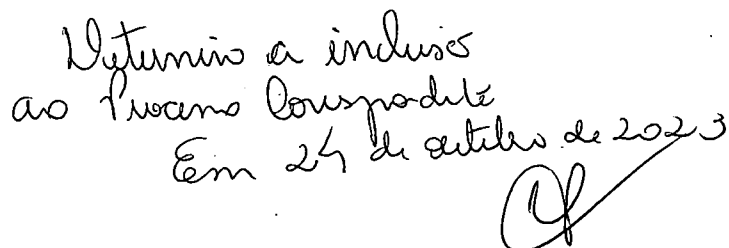 Determino a inclusão
ao Processo Correspondente
Em 24 de outubro de 2023